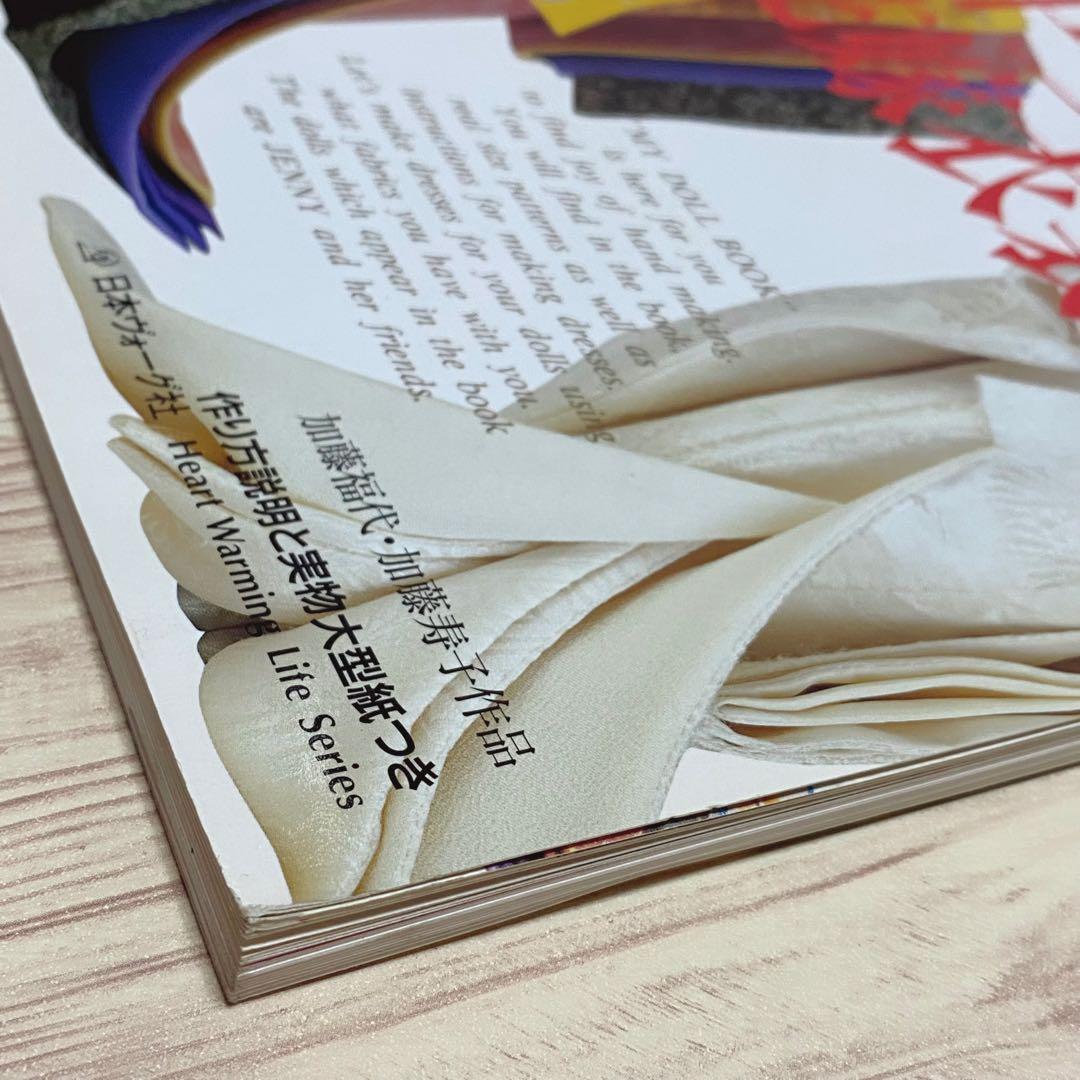 "MY DOLL BOOK"
is here for you
to find joy of hand making.
You will find in the book,
real size patterns as well as
instructions for making dresses.
Let's make dresses for your dolls using
what fabrics you have with you.
The dolls which appear in the book
are JENNY and her friends.
加藤福代・加藤寿子作品
作り方説明と実物大型紙つき
日本ヴォーグ社 Heart Warming Life Series